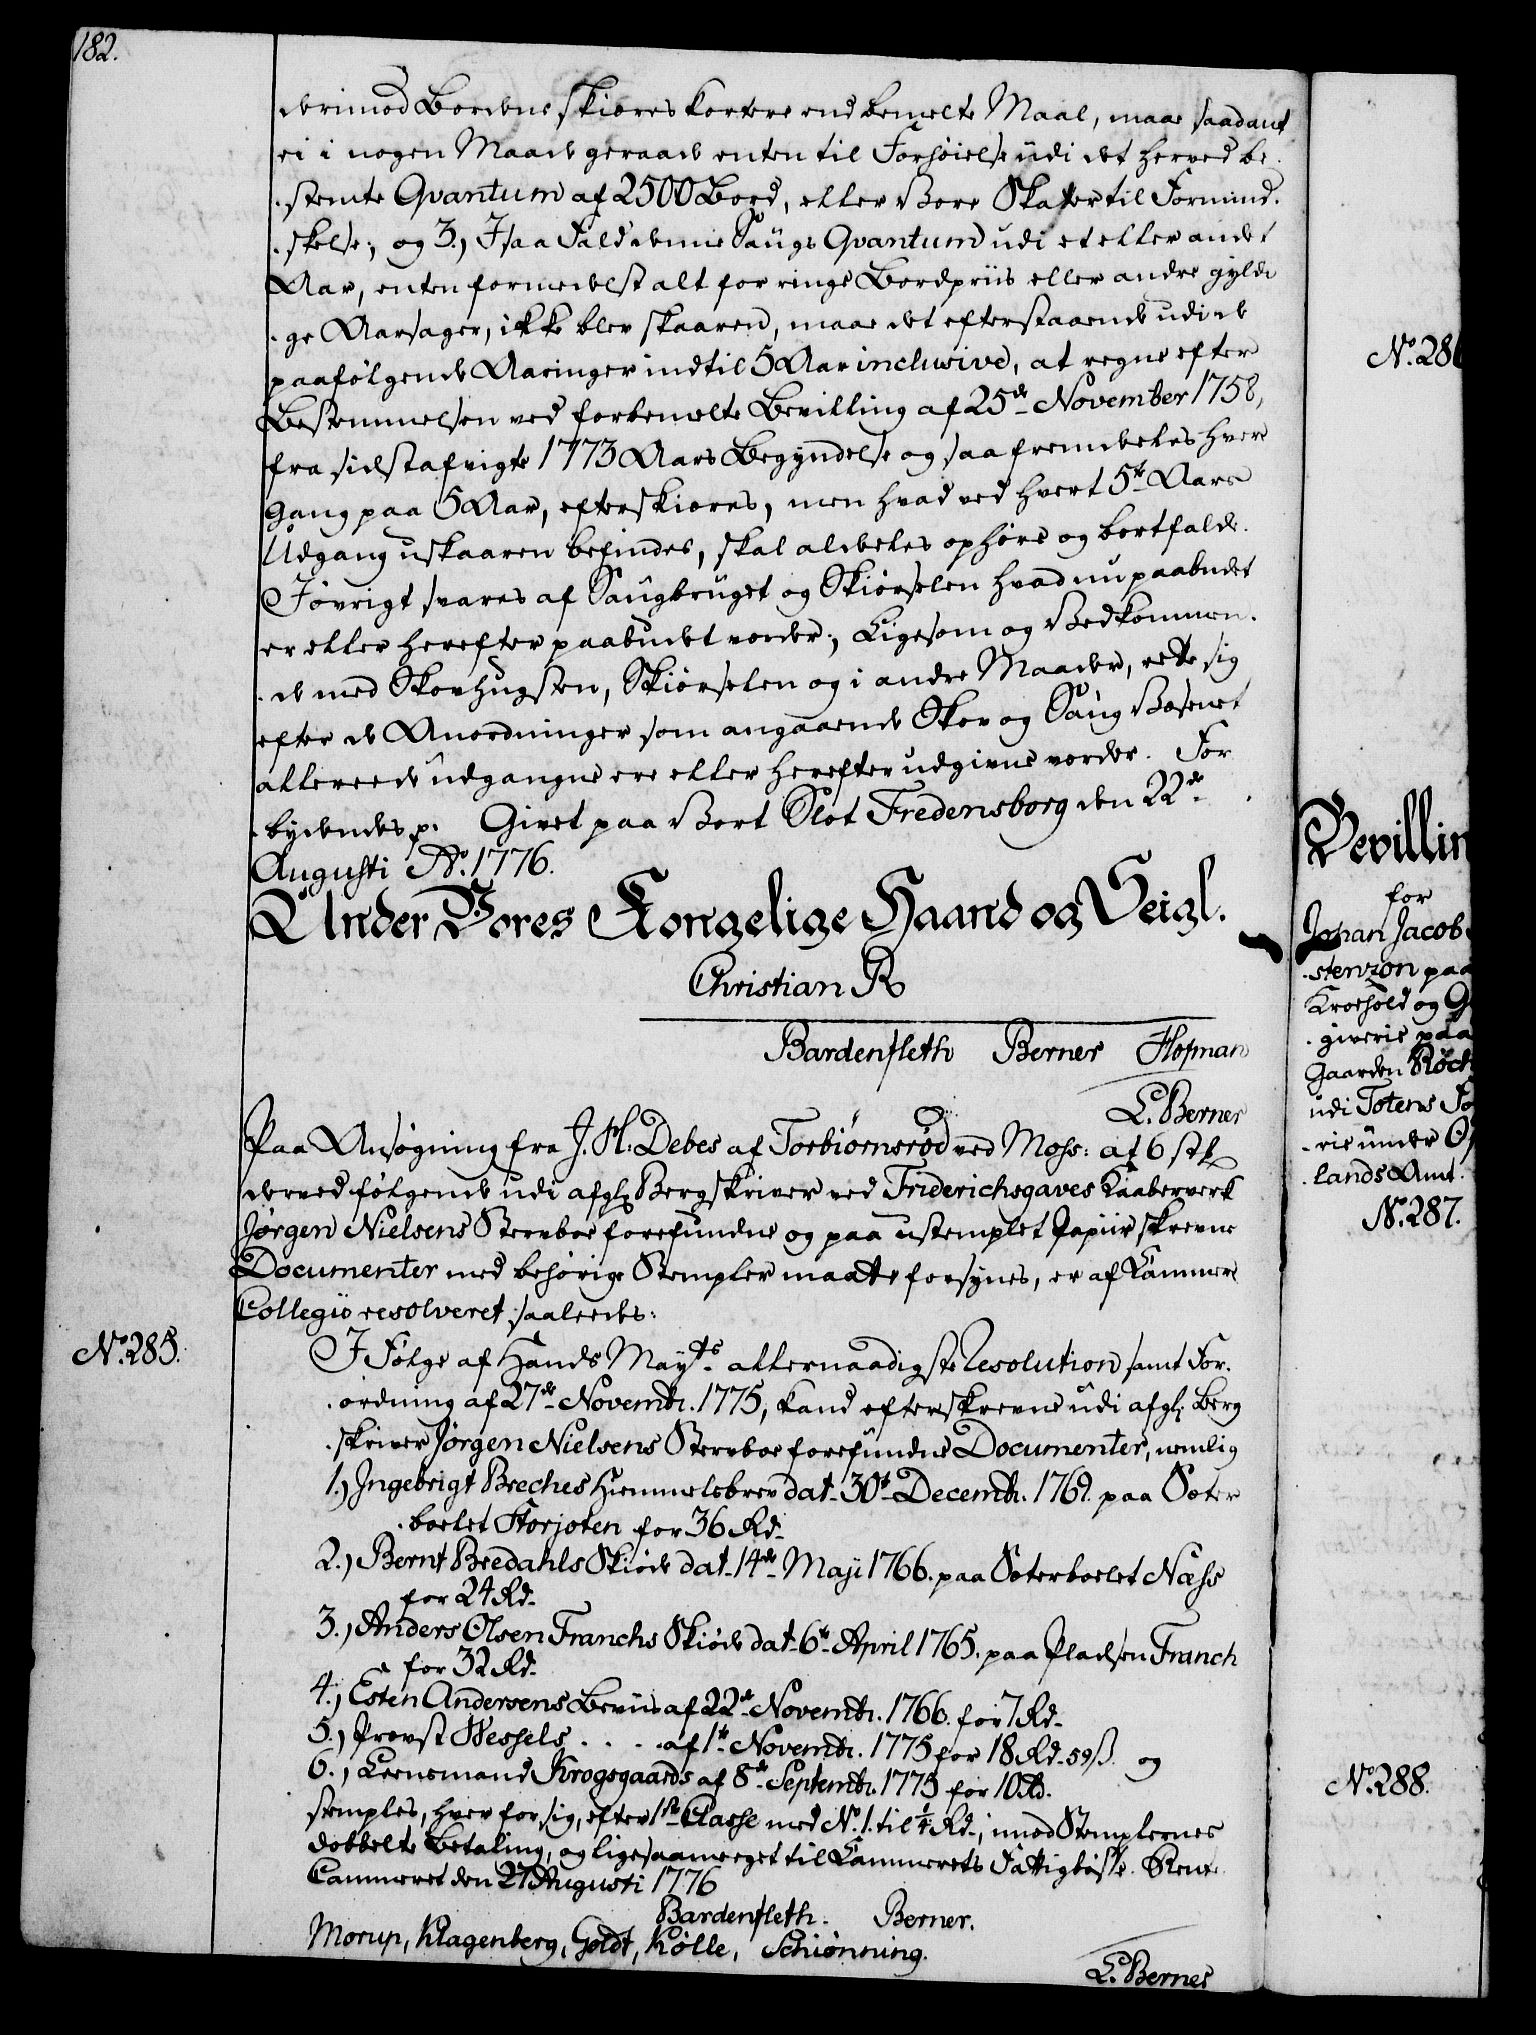 182.
derimod Bordene skiæres kortere end bemelte Maal, maae saadant
ei i nogen Maade geraade enten til Forhøielse udi det herved be-
-stemte Qvantum af 2500 Bord, eller Vore Skatter til Formind-
-skelse; og 3.) I saa Fald denne Saugs Qvantum udi et eller andet
Aar, enten formedelst alt for ringe Bordpriis eller andre gyldi
-ge Aarsager, ikke blev skaaren, maae det efterstaaende udi de
paafølgende Aaringer indtil 5 Aar inclusive, at regne efter
Bestemmelsen ved forbemelte Bevilling af 25de November 1758,
fra sidstafvigte 1773 Aars Begyndelse og saa fremdeles hver
gang paa 5 Aar, efterskiæres, men hvad ved hvert 5te Aars
Udgang uskaaren befindes, skal aldeeles ophøre og bortfalde.
Iøvrigt svares af Saugbruget og Skiørselen hvad nu paabudet
er eller herefter paabudet vorder; Ligesom og Vedkommen-
-de med Skovhugsten, Skiørselen og i andre Maader, rette sig
efter de Anordninger som angaaende Skov og Saug Væsenet
allereede udgangne ere eller herefter udgivne vorder. For
-bydendes p. Givet paa Vort Slot Fredensborg den 22de
Augusti Ao. 1776.
Under Vores Kongelige Haand og Seigl.
Christian R
Bardenfleth Berner Hofman
L. Berner
Paa Ansøgning fra J. H. Debes af Torbiørnsrød ved Moss: at 6 stk
derved følgende udi afgl. Bergskriver ved Friderichsgaves Kaaberverk
Jørgen Nielsens Stervboe forefundne og paa ustemplet Papiir skrevne
Documenter med behørige Stempler maatte forsynes, er af Kammer
Collegio resolveret saaleedes:
No. 285.
I Følge af Hands Mayts allernaadigste Resolution samt For-
-ordning af 27de Novembr. 1775, kand efterskrevne udi afgl. Berg
-skriver Jørgen Nielsens Stervboe forefundne Documenter, nemlig
1.) Ingebrigt Breches Hiemmelsbrev dat. 30te Decembr. 1769. paa Sæter
-boelet Storjoten for 36 Rd.
2.) Bernt Bredahls Skiøde dat. 14de Maji 1766. paa Sæterboelet Næss
for 24 Rd.
3.) Anders Olsen Franchs Skiøde dat. 6te April 1765. paa Pladsen Franch
for 32 Rd.
4.) Esten Andersens Beviis af 22de Novembr. 1766. for 7 Rd.
5.) Provst Wessels . . . . af 1te Novembr. 1775 for 18 Rd. 59 ß. og
6.) Leensmand Krogsgaards af 8de Septembr. 1775 for 10 Rd.
stemples, hver for sig, efter 1ste Classe med No. 1. til ¼ Rd., imod Stemplernes
dobbelte Betaling, og ligesaameeget til Kammerets Fattigbøsse. Rente
Cammeret den 27 Augusti 1776
Bardenfleth. Berner.
Morup, Klagenberg, Goldt, Kølle, Schiønning.
L. Berner
No. 286
Bevillin
for
Johan Jacob
-stenzon paa
Kroehold og G
-giverie paa
Gaarden
udi Totens Fo
-rie under O
-lands Amt.
No. 287.
No. 288.